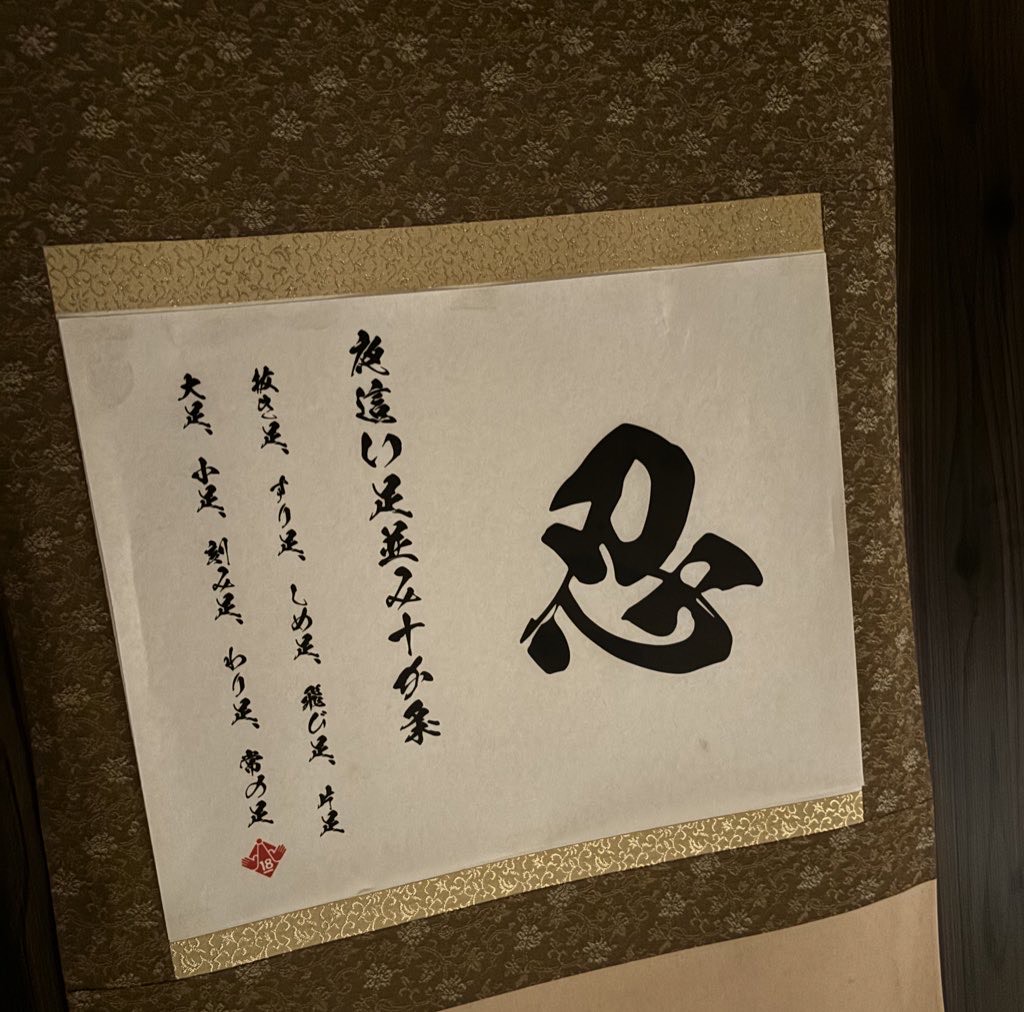 忍
夜這い足並み十か条
抜き足、すり足、しめ足、飛び足、片足
大足、小足、刻み足、わり足、常の足
18